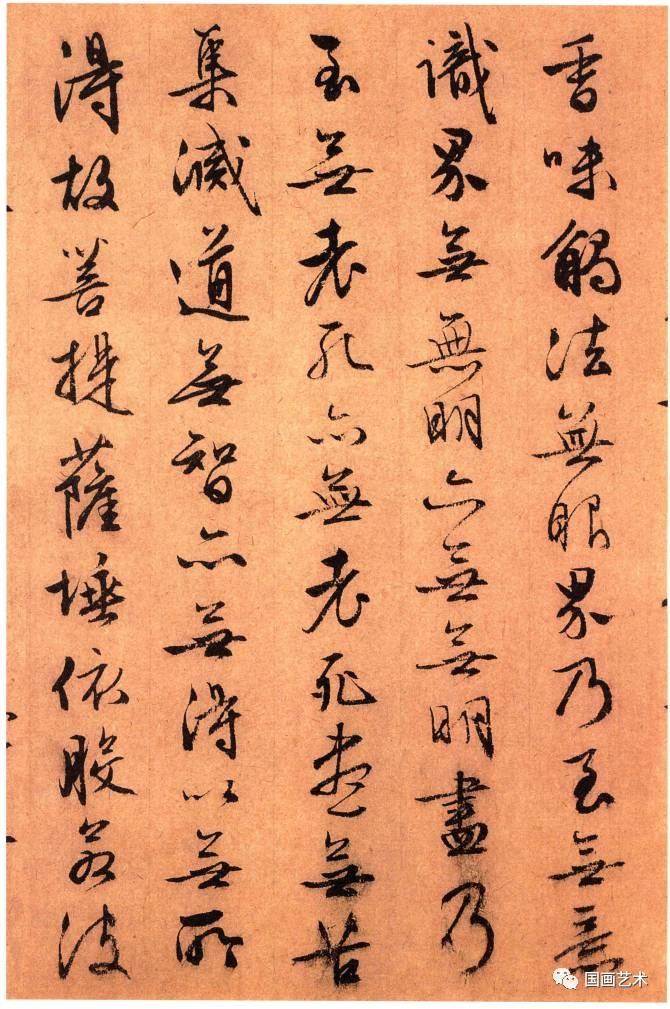 香味觸法無眼界乃至無意
識界無無明亦無無明盡乃
至無老死亦無老死盡無苦
集滅道無智亦無得以無所
得故菩提薩埵依般若波
国画艺术